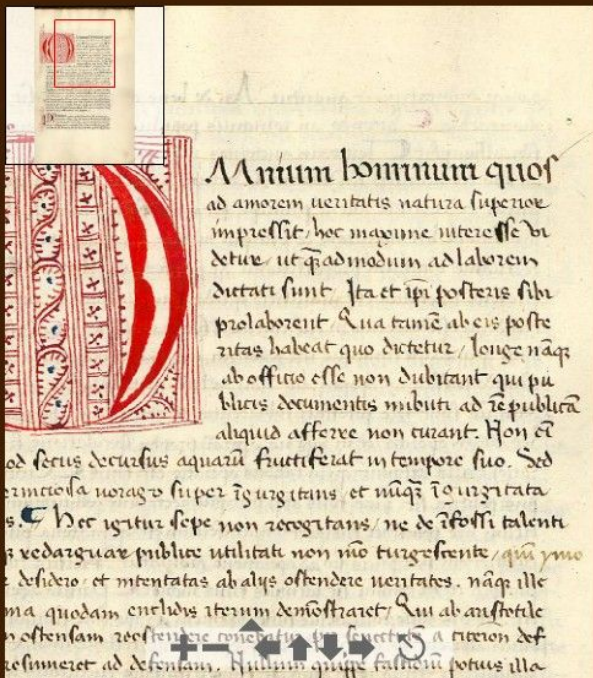 OMnium hominum quos
ad amorem ueritatis natura superior
impressit / hoc maxime interesse vi
detur / ut q̄admodum ad laborem
dictati sunt Ita et ip̄i posteris sibi
prolaborent / Qua tamē ab eis poste
ritas habeat quo dictetur / longe nāq
ab officio esse non dubitant qui pu
blicis documentis imbuti ad rēpublicā
aliquid afferre non curant. Non eī
od secus decursus aquarū fructiferat in tempore suo. Sed
ernitiosa uorago super īgurgitans et nūq īgurgitata
s. Hec igitur sepe non recogitans / ne de īfossi talenti
redarguar publice utilitati non mō turgescente / quī ymo
desidero et intentatas ab alijs ostendere ueritates. nāq ille
ma quodam euclidis iterum demōstraret / Qui ab aristotile
ostensam reostendere conebatur senectutē a ciceron def
resumeret ad defensam. Nullum quippe potius illa